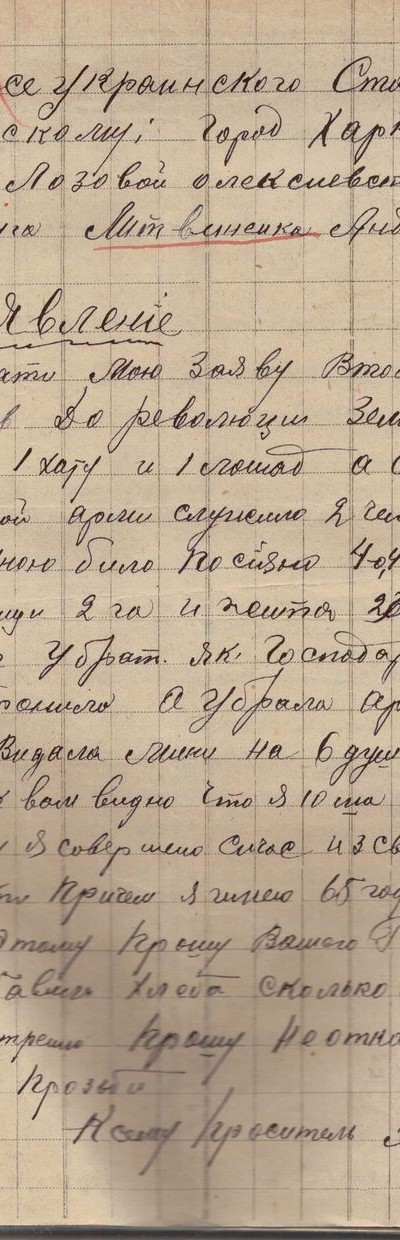 се Украинского Ста
скому; Город Харк
Лозовой олексиевск
Литвиненка Анд
явленіе
ати Мою Заяву Втос
До революции Зем
1 хату и 1 лошад а С
ой арми служило 2 чел
ною било посіяно 4
2 га и жита
Убрат. як Господар
А Убрала ар
Видала Мини на 6 душ
вам видно что я 10
я совершено Сичас из св
Причем я имею 65 год
этому Прошу Вашего
Хлеба сколько
Прошу Не отка
Прозьби
К сему Проситель